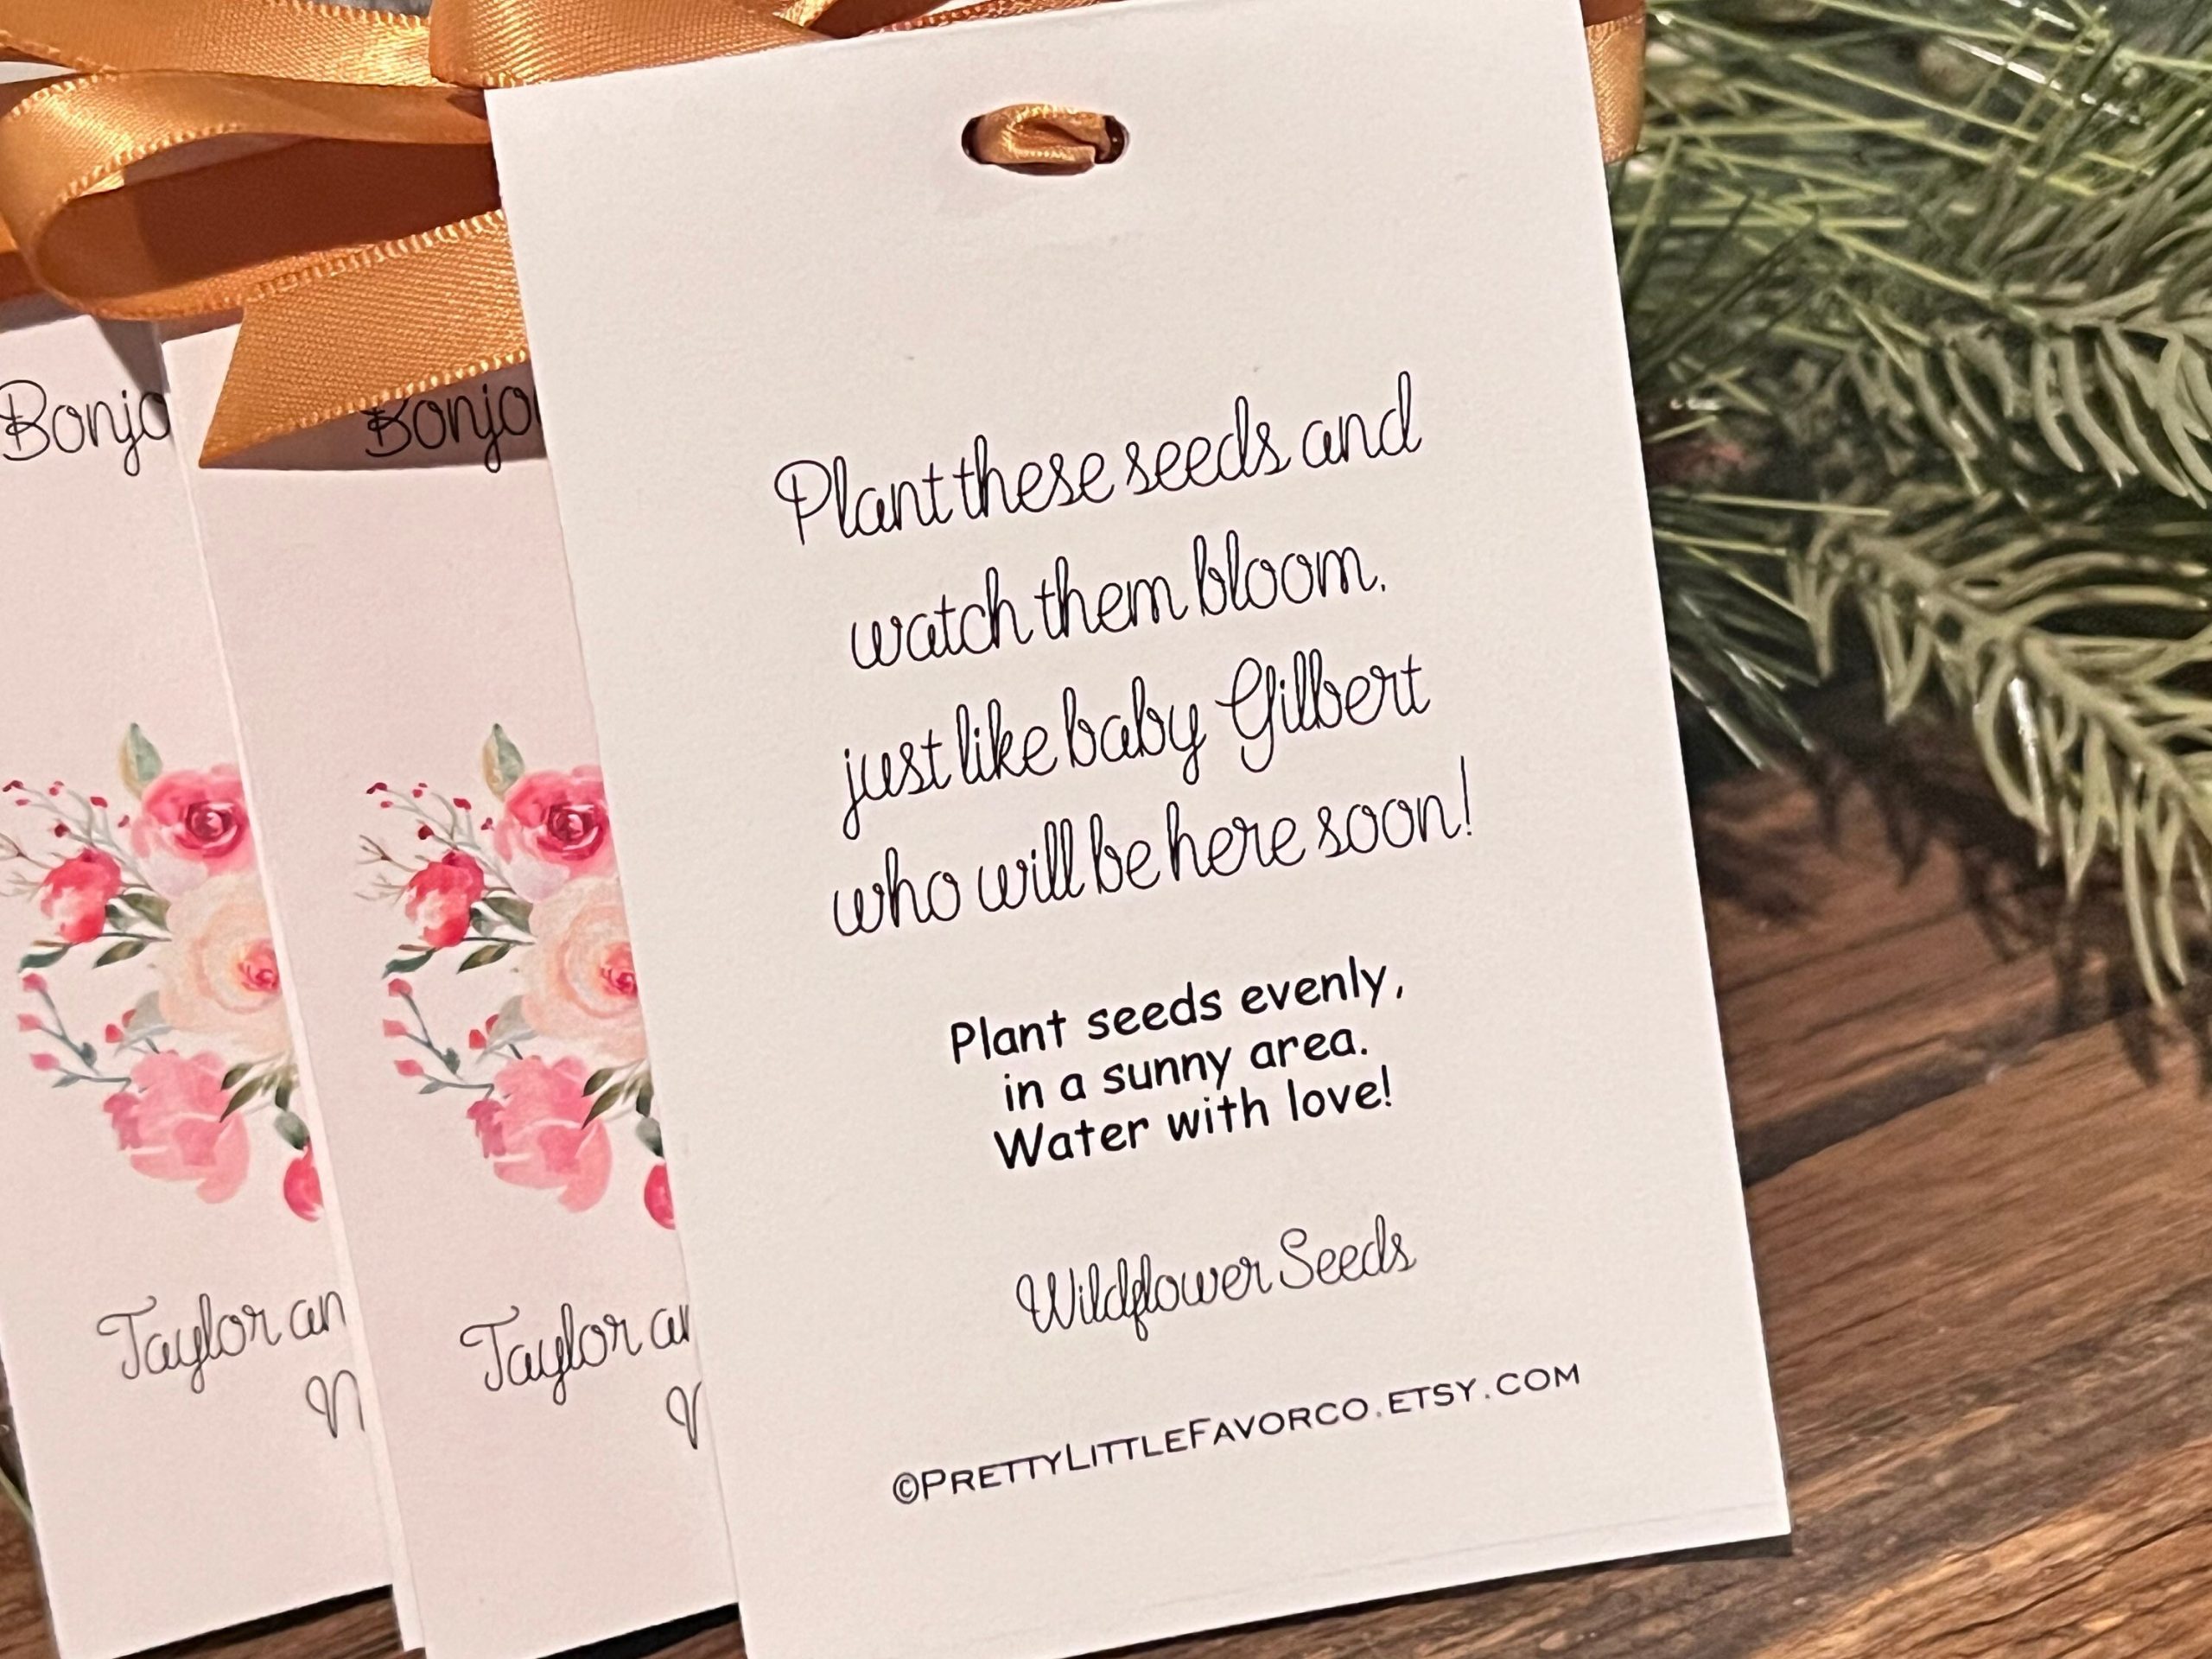 Plant these seeds and
watch them bloom.
just like baby Gilbert
who will be here soon!
Plant seeds evenly,
in a sunny area.
Water with love!
Wildflower Seeds
©PrettyLittleFavorCo.etsy.com
Bonjo
Taylor an
Bonjo
Taylor a